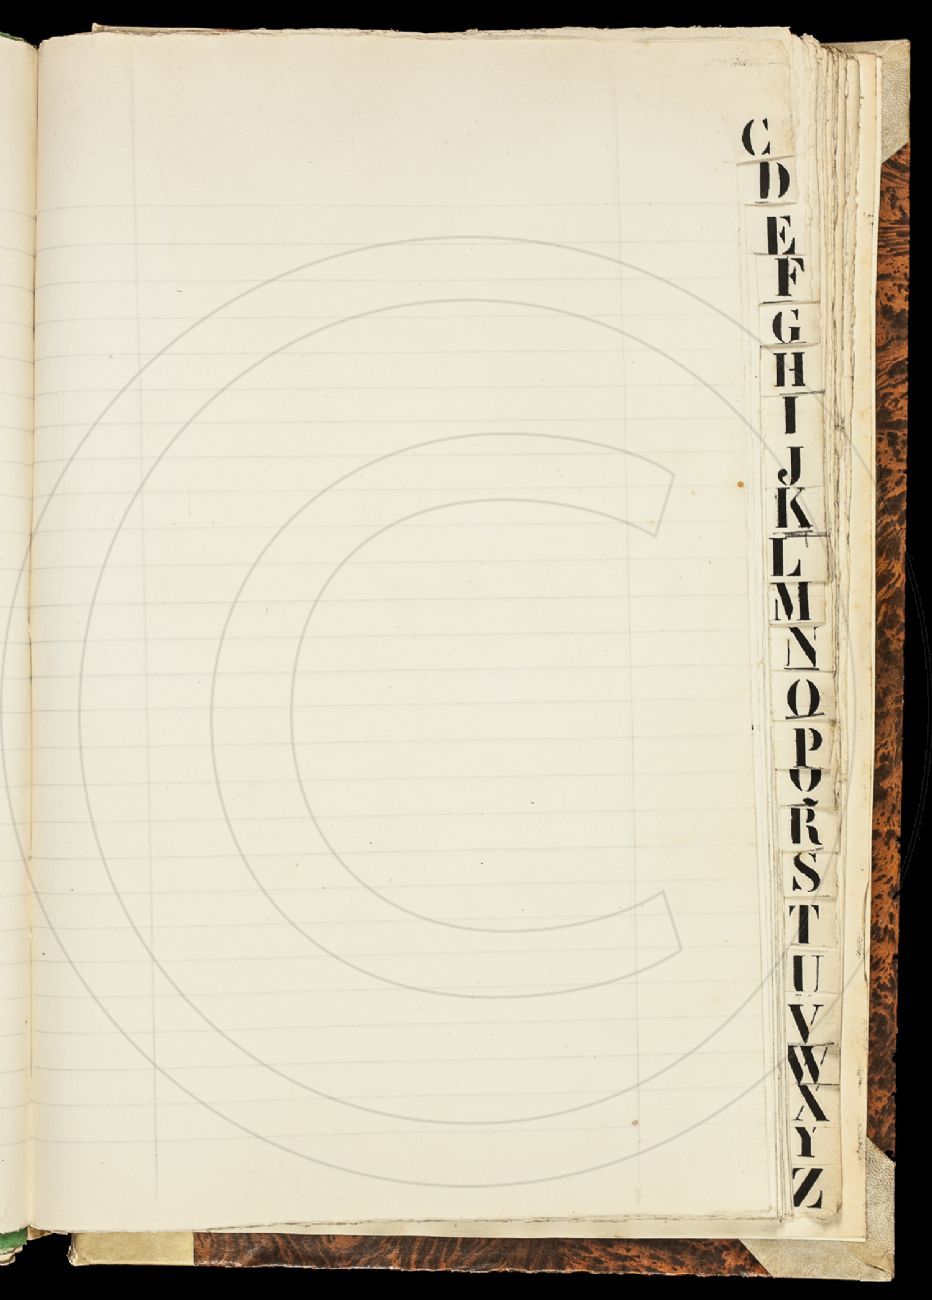 C
D
E
F
G
H
I
J
K
L
M
N
O
P
Q
R
S
T
U
V
W
X
Y
Z
©